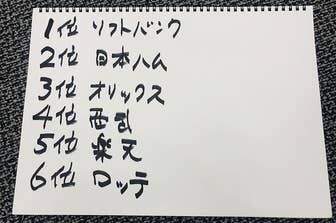 1位 ソフトバンク
2位 日本ハム
3位 オリックス
4位 西武
5位 楽天
6位 ロッテ